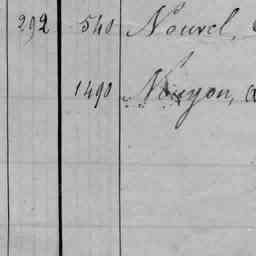 292 540 Nouvel,
1490 Nouyon, a